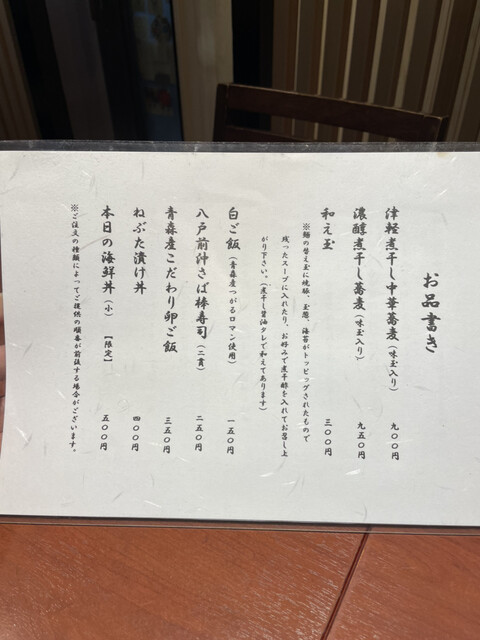 お品書き
津軽煮干し中華蕎麦（味玉入り） 九〇〇円
濃醇煮干し蕎麦（味玉入り） 九五〇円
和え玉 三〇〇円
※麺の替え玉に焼豚、玉葱、海苔がトッピングされたもので
残ったスープに入れたり、お好みで煮干酢を入れてお召し上
がり下さい。（煮干し醤油タレで和えてあります）
白ご飯（青森産つがるロマン使用） 一五〇円
八戸前沖さば棒寿司（二貫） 二五〇円
青森産こだわり卵ご飯 三五〇円
ねぶた漬け丼 四〇〇円
本日の海鮮丼（小）【限定】 五〇〇円
※ご注文の種類によってご提供の順番が前後する場合がございます。